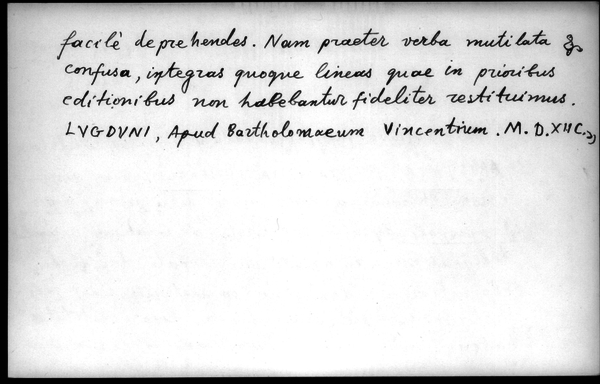 facilè deprehendes. Nam praeter verba mutilata &
confusa, integras quoque lineas quae in prioribus
editionibus non habebantur fideliter restituimus.
LVGDVNI, Apud Bartholomaeum Vincentium. M. D. XIIC.